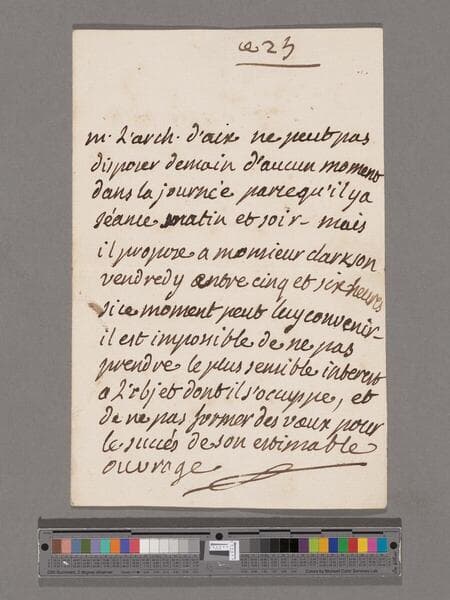 ce 25
m. L'arch. d'aix ne peut pas
disposer demain d'aucun moment
dans la journée parcequ'il y a
séance matin et soir - mais
il propose a monsieur clarkson
vendredy entre cinq et six heures
si ce moment peut luy convenir -
il est impossible de ne pas
prendre le plus sensible interest
a L'objet dont il s'occuppe, et
de ne pas former des vœux pour
le succés de son estimable
ouvrage